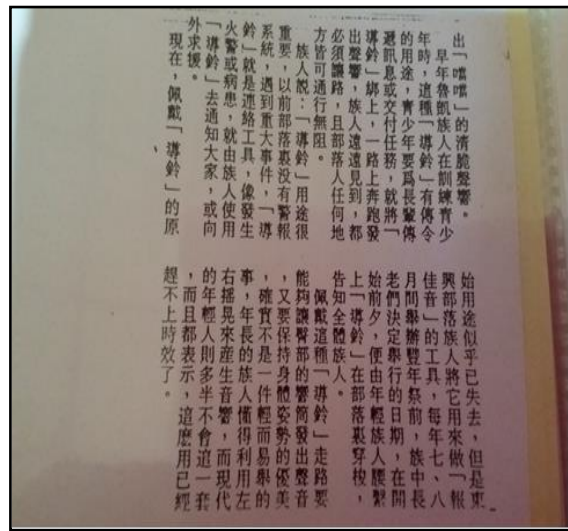 出「噹噹」的清脆聲響。
早年魯凱族人在訓練青少
年時，這種「導鈴」有傳令
的用途，青少年要爲長輩傳
遞訊息或交付任務，就將「
導鈴」綁上，一路上奔跑發
出聲響，族人遠遠見到，都
必須讓路，且部落人任何地
方皆可通行無阻。
族人説：「導鈴」用途很
重要，以前部落裏没有警報
系統，遇到重大事件，「導
鈴」就是連絡工具，像發生
火警或病患，就由族人使用
「導鈴」去通知大家，或向
外求援。
現在，佩戴「導鈴」的原
始用途似乎已失去，但是東
興部落族人將它用來做「報
佳音」的工具，每年七、八
月間舉辦豐年祭前，族中長
老們決定舉行的日期，在開
始前夕，便由年輕族人腰繫
上「導鈴」在部落裏穿梭，
告知全體族人。
佩戴這種「導鈴」走路要
能夠讓臀部的響筒發出聲音
，又要保持身體姿勢的優美
，確實不是一件輕而易舉的
事，年長的族人懂得利用左
右摇晃來産生音響，而現代
的年輕人則多半不會這一套
，而且都表示，這麽用已經
趕不上時效了。